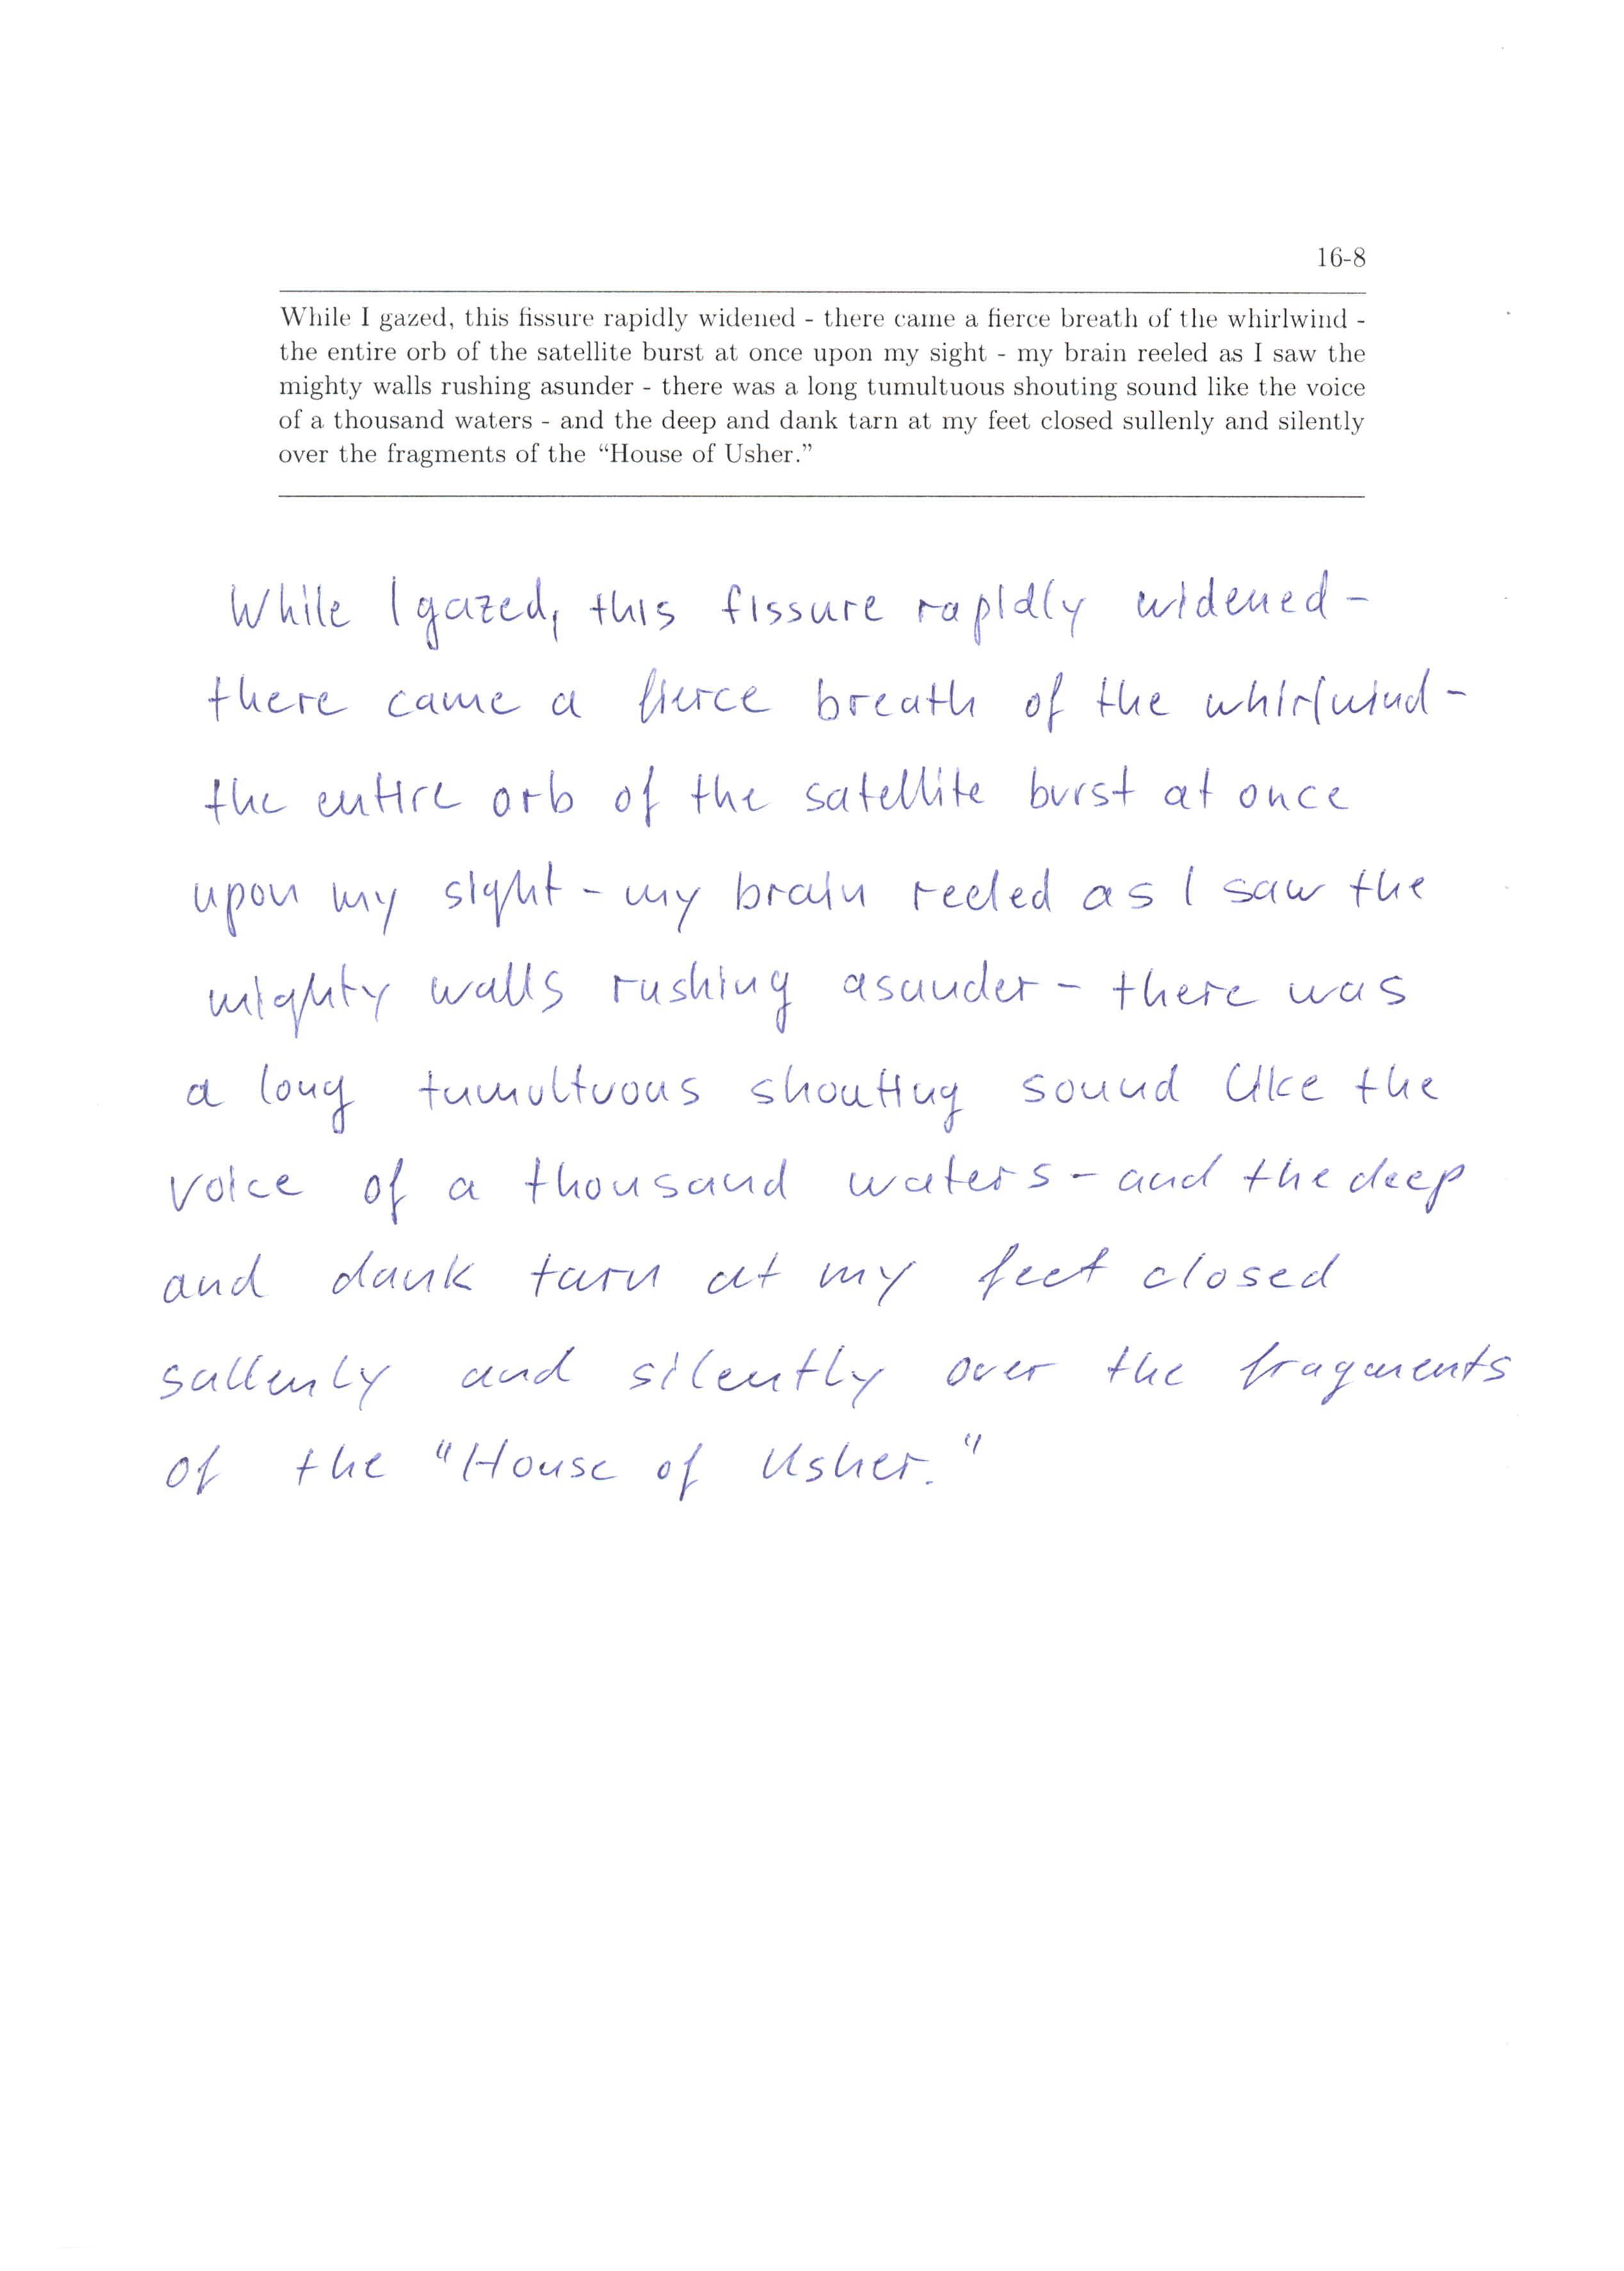 16-8
While I gazed, this fissure rapidly widened - there came a fierce breath of the whirlwind -
the entire orb of the satellite burst at once upon my sight - my brain reeled as I saw the
mighty walls rushing asunder - there was a long tumultuous shouting sound like the voice
of a thousand waters - and the deep and dank tarn at my feet closed sullenly and silently
over the fragments of the “House of Usher.”
While I gazed, this fissure rapidly widened -
there came a fierce breath of the whirlwind -
the entire orb of the satellite burst at once
upon my sight - my brain reeled as I saw the
mighty walls rushing asunder - there was
a long tumultuous shouting sound like the
voice of a thousand waters - and the deep
and dank tarn at my feet closed
sullenly and silently over the fragments
of the "House of Usher."